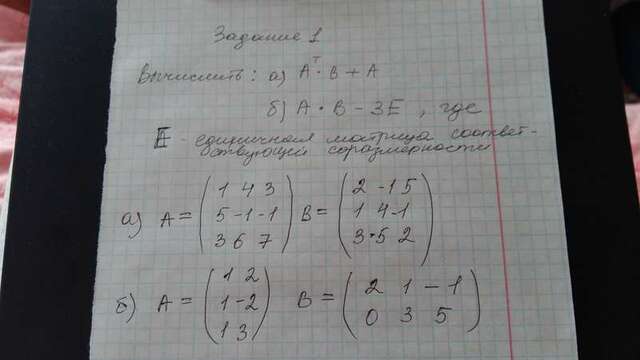 Задание 1
Вычислить: а) Aᵀ · B + A
б) A · B - 3E , где
E - единичная матрица соответ-
ствующей соразмерности
а) A = (1 4 3; 5 -1 -1; 3 6 7) B = (2 -1 5; 1 4 -1; 3 -5 2)
б) A = (1 2; 1 -2; 1 3) B = (2 1 -1; 0 3 5)